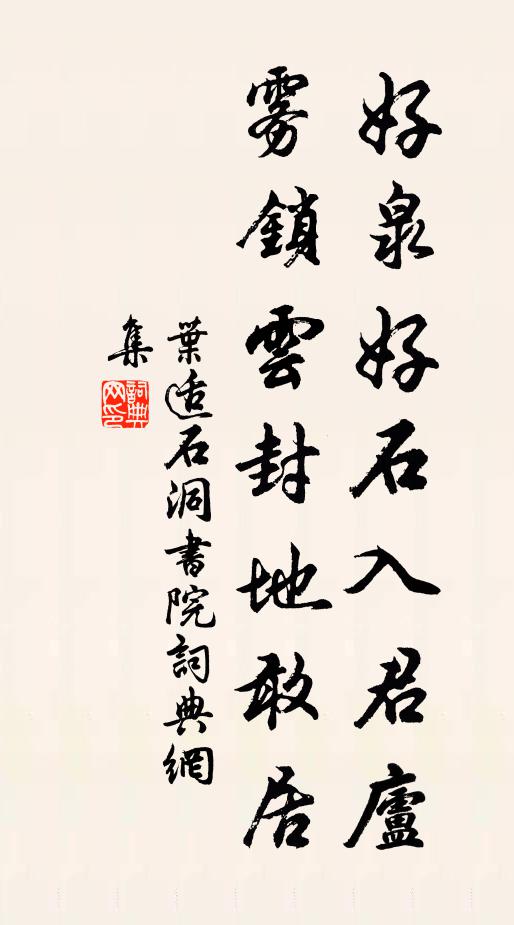 好泉好石入君廬
霧鎖雲封地敢居
葉适石洞書院詞典網
集
詞典網印